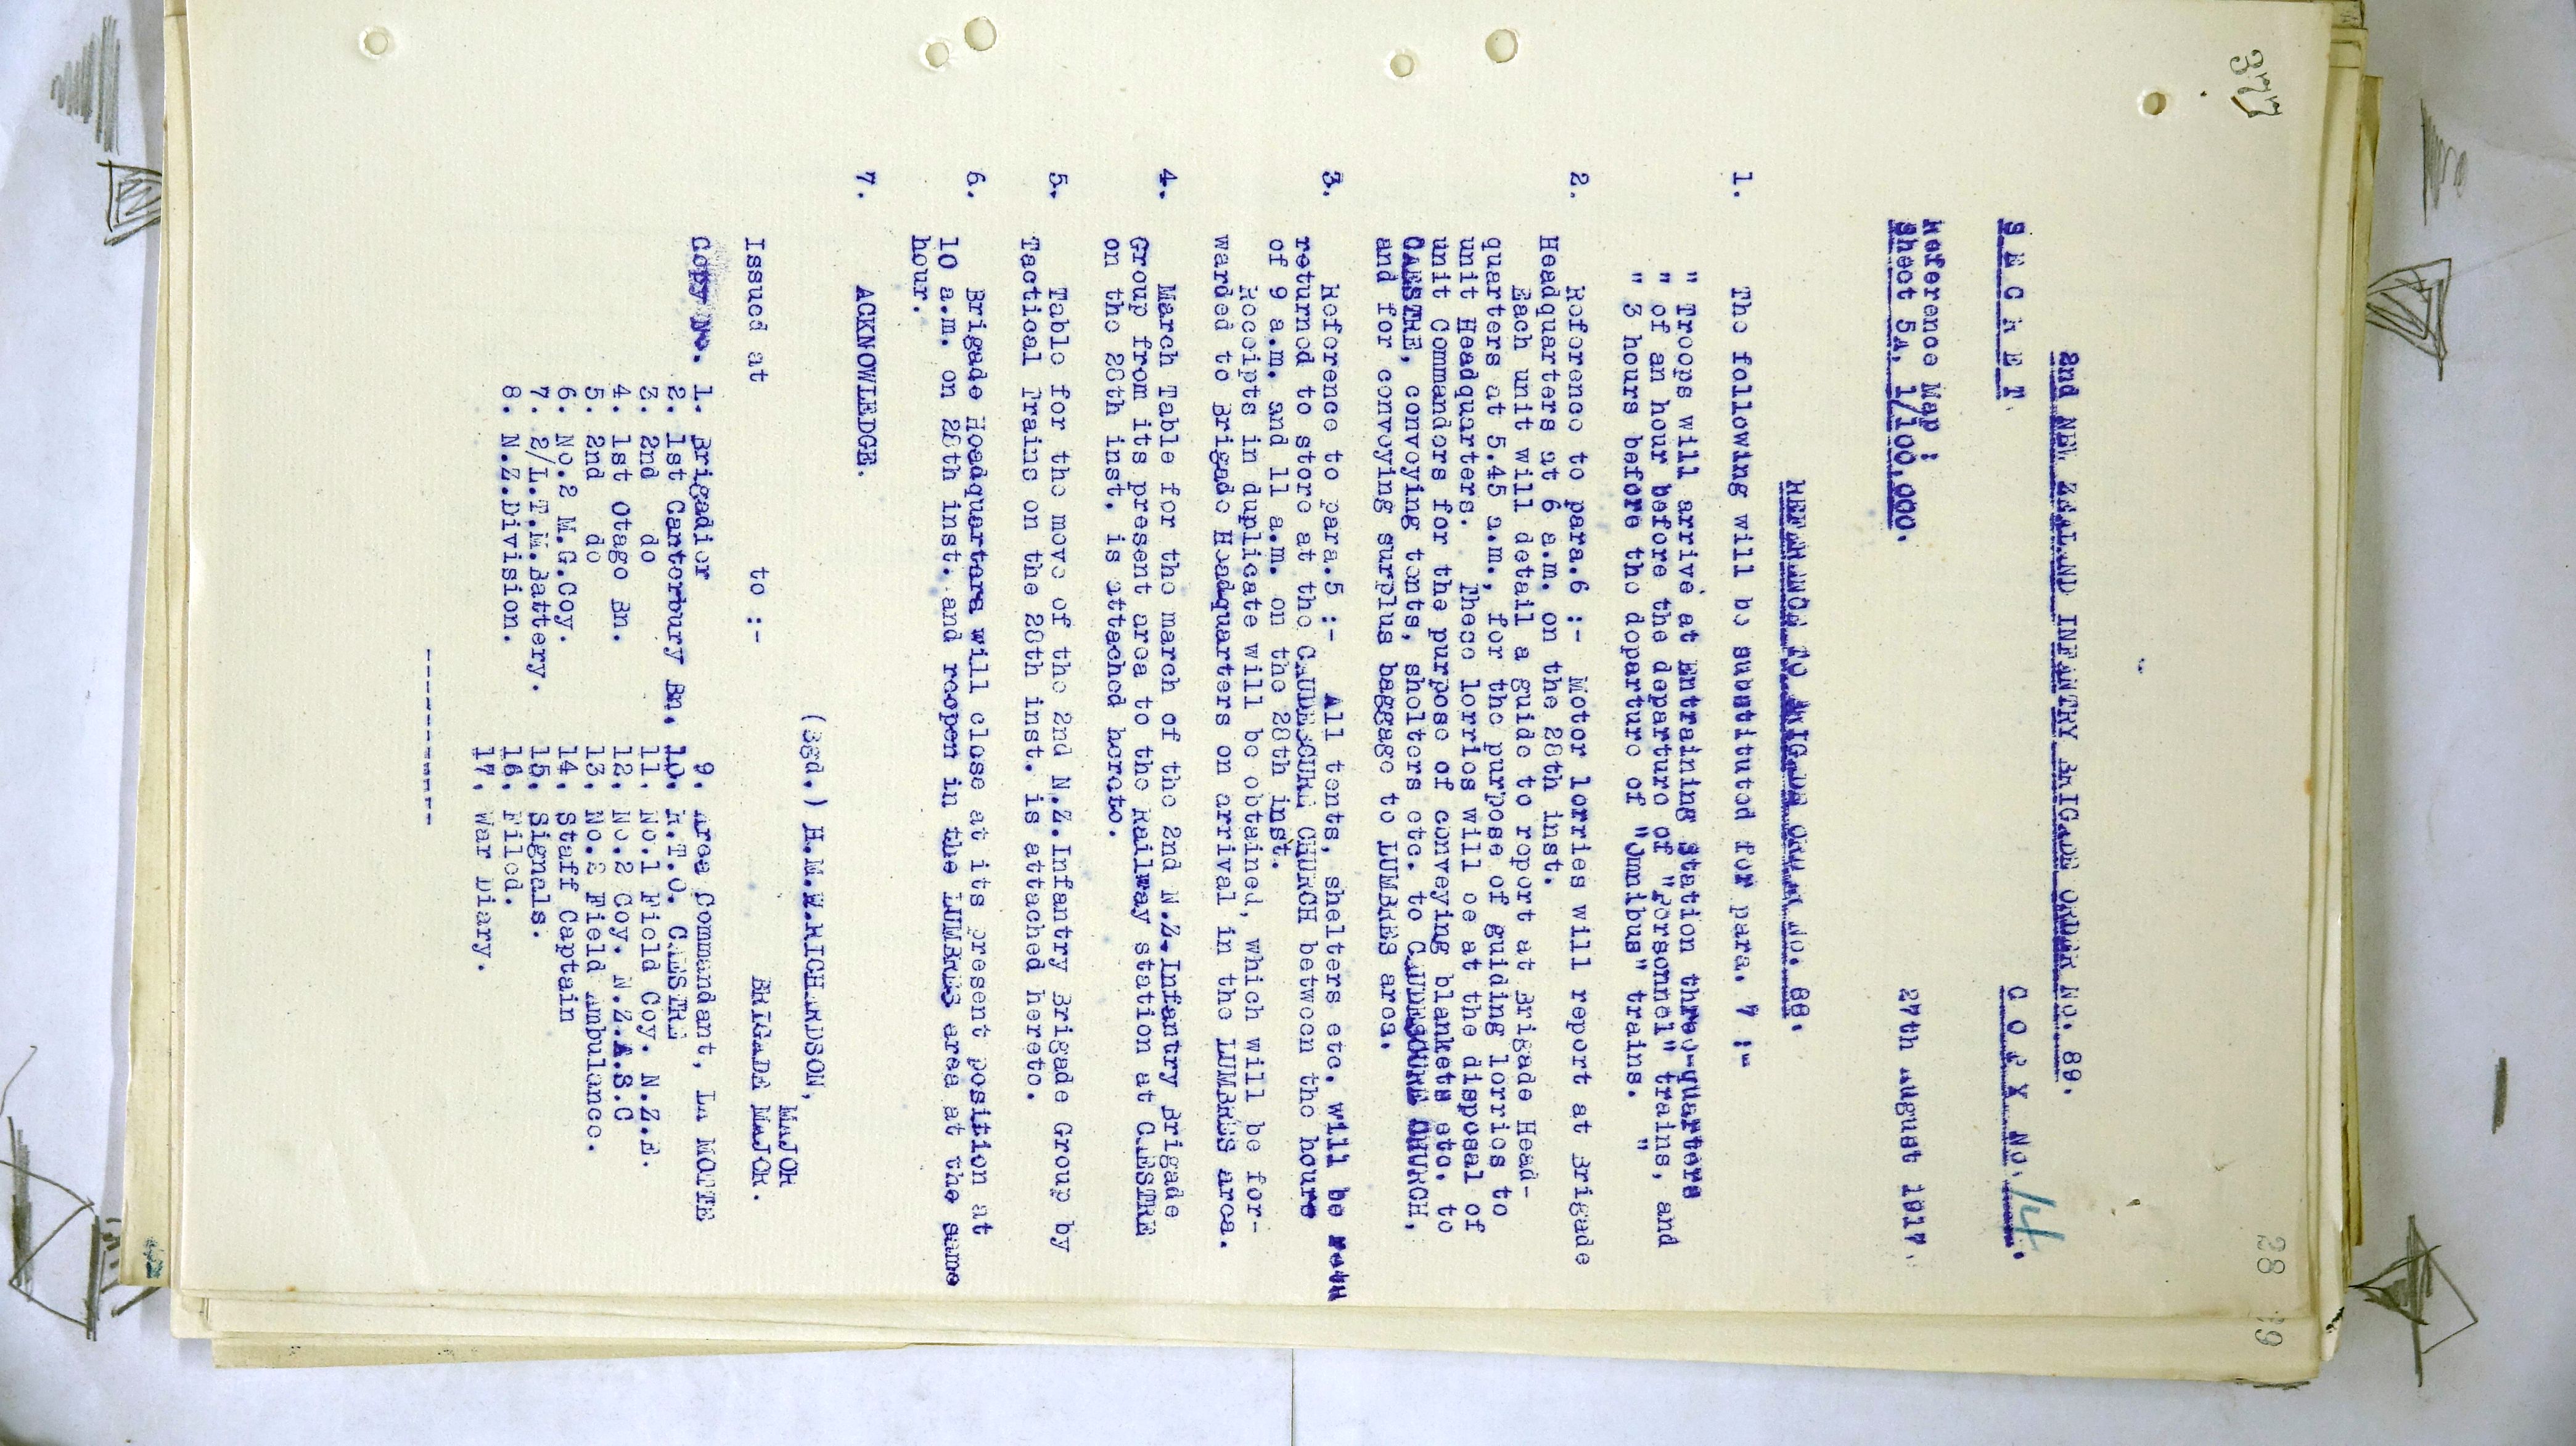 377
28
2nd NEW ZEALAND INFANTRY BRIGADE ORDER NO. 89.
S E C R E T. C O P Y NO. 14
Reference Map :
Sheet 5A, 1/100,000. 27th August 1917.
REFERENCE TO BRIGADE ORDER NO. 88.
1. The following will be substituted for para. 7 :-
" Troops will arrive at Entraining Station three-quarters
" of an hour before the departure of "Personnel" trains, and
" 3 hours before the departure of "Omnibus" trains. "
2. Reference to para.6 :- Motor lorries will report at Brigade
Headquarters at 6 a.m. on the 28th inst.
Each unit will detail a guide to report at Brigade Head-
quarters at 5.45 a.m., for the purpose of guiding lorries to
unit Headquarters. These lorries will be at the disposal of
unit Commanders for the purpose of conveying blankets etc. to
CAESTRE, conveying tents, shelters etc. to CAUDESCURE CHURCH,
and for conveying surplus baggage to LUMBRES area.
3. Reference to para.5 :- All tents, shelters etc. will be
returned to store at the CAUDESCURE CHURCH between the hours
of 9 a.m. and 11 a.m. on the 28th inst.
Receipts in duplicate will be obtained, which will be for-
warded to Brigade Headquarters on arrival in the LUMBRES area.
4. March Table for the march of the 2nd N.Z.Infantry Brigade
Group from its present area to the Railway station at CAESTRE
on the 28th inst. is attached hereto.
5. Table for the move of the 2nd N.Z.Infantry Brigade Group by
Tactical Trains on the 28th inst. is attached hereto.
6. Brigade Headquarters will close at its present position at
10 a.m. on 28th inst. and reopen in the LUMBRES area at the same
hour.
7. ACKNOWLEDGE.
(Sgd.) H.M.W.RICHARDSON,
MAJOR
Issued at to :- BRIGADE MAJOR.
Copy No. 1. Brigadier 9. Area Commandant, LA MOTTE
2. 1st Canterbury Bn. 10. R.T.O. CAESTRE
3. 2nd do 11. No.1 Field Coy. N.Z.E.
4. 1st Otago Bn. 12. No.2 Coy. N.Z.A.S.C
5. 2nd do 13. No.2 Field Ambulance.
6. No.2 M.G.Coy. 14. Staff Captain
7. 2/L.T.M.Battery. 15. Signals.
8. N.Z.Division. 16. Filed.
17. War Diary.
----------